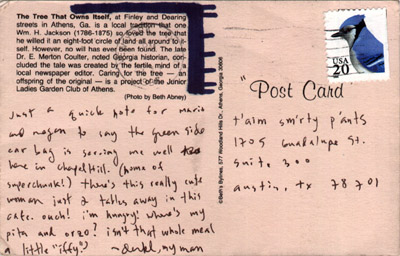 The Tree That Owns Itself, at Finley and Dearing
streets in Athens, Ga. is a local tradition that one
Wm. H. Jackson (1786-1875) so loved the tree that
he willed it an eight-foot circle of land all around to it-
self. However, no will has ever been found. The late
Dr. E. Merton Coulter, noted Georgia historian, con-
cluded the tale was created by the fertile mind of a
local newspaper editor. Caring for the tree — an
offspring of the original — is a project of the Junior
Ladies Garden Club of Athens.
(Photo by Beth Abney)
just a quick note for maria
and megan to say the green side
car bag is serving me well
here in chapel hill. (home of
superchunk!) there's this really cute
woman just 2 tables away in this
cafe. ouch! i'm hungry! where's my
pita and orzo? isn't that whole meal
a little "iffy?"
my man
©Beth's Bylines, 577 Woodland Hills Dr., Athens, Georgia 30606
USA
20
Post Card
t'aim smarty pants
1705 guadalupe st.
suite 300
austin, tx 78701